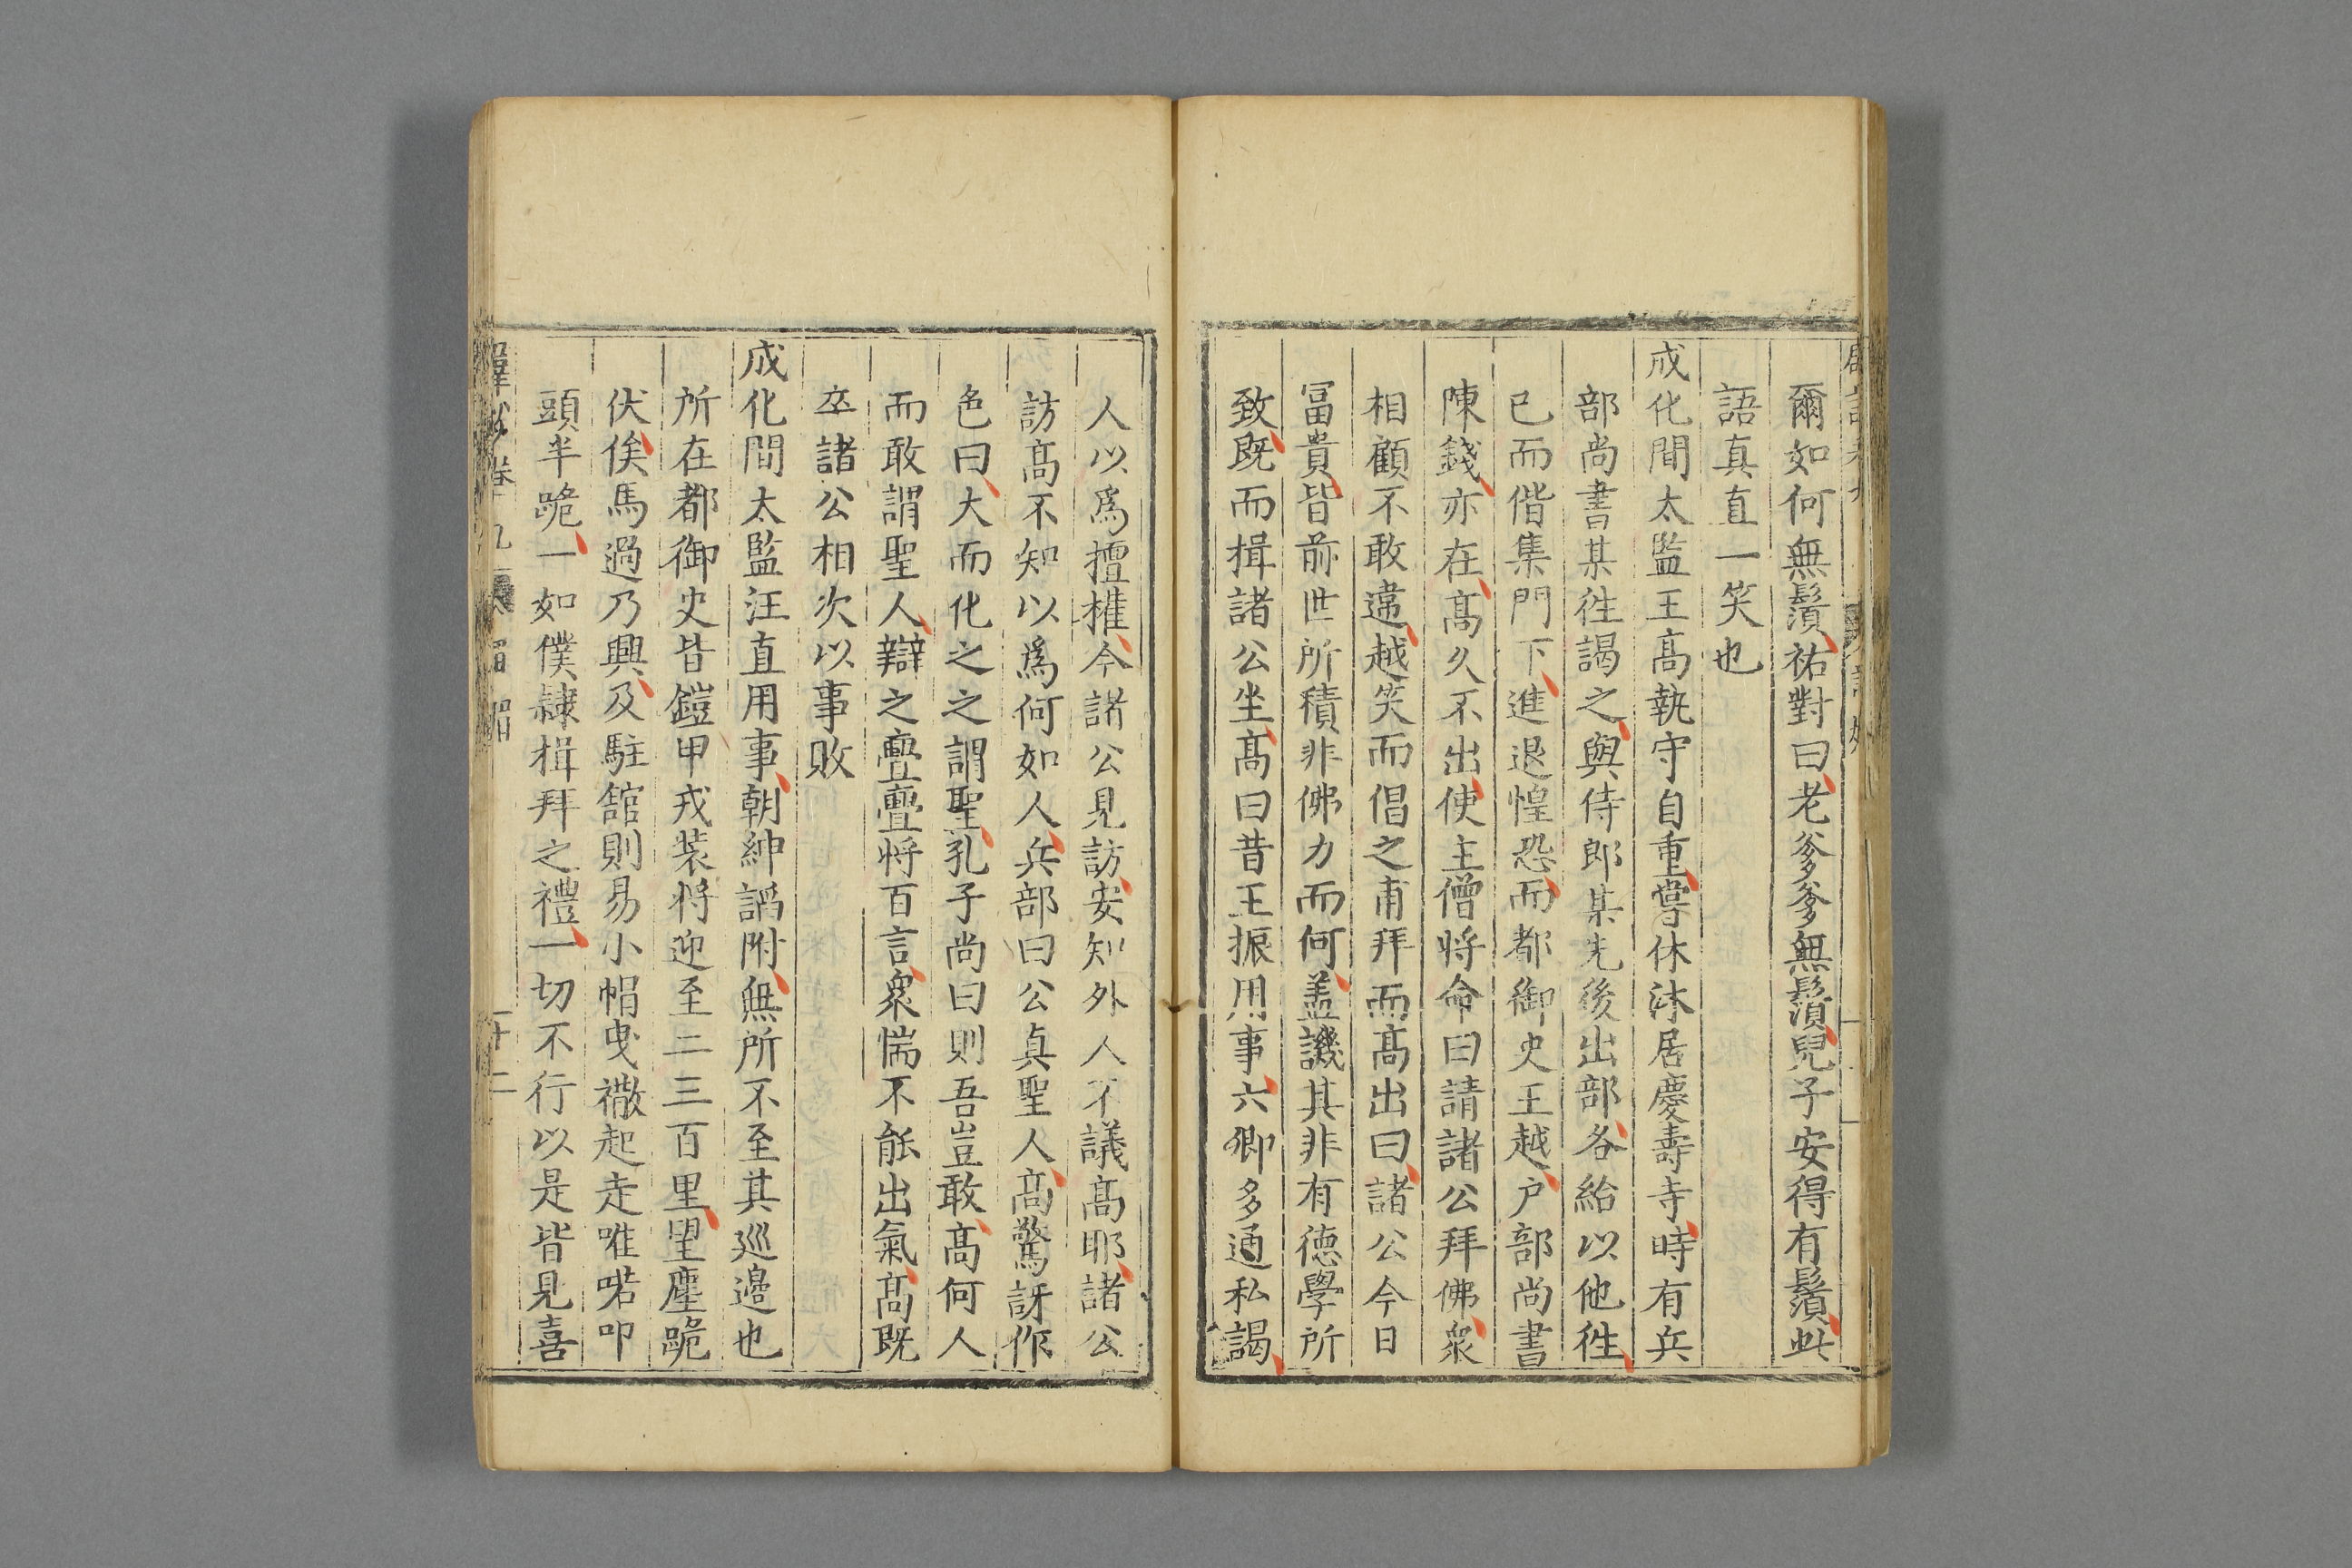 爾如何無鬚祐對曰老爹爹無鬚兒子安得有鬚此
語真直一笑也
成化間太監王髙執守自重嘗休沐居慶壽寺時有兵
部尚書某徃謁之與侍郎某先後出部各給以他徃
已而偕集門下進退惶恐而都御史王越户部尚書
陳錢亦在髙久不出使主僧将命曰請諸公拜佛衆
相顧不敢違越笑而倡之甫拜而髙出曰諸公今日
冨貴皆前世所積非佛力而何盖譏其非有德學所
致既而揖諸公坐髙曰昔王振用事六卿多通私謁
人以爲擅權今諸公見訪安知外人不議髙耶諸公
訪髙不知以爲何如人兵部曰公真聖人髙驚訝作
色曰大而化之之謂聖孔子尚曰則吾豈敢髙何人
而敢謂聖人辯之亹亹将百言衆惴不能出氣髙既
卒諸公相次以事敗
成化間太監汪直用事朝紳謟附無所不至其巡邉也
所在都御史皆鎧甲戎装将迎至二三百里望塵跪
伏俟馬過乃興及駐舘則易小帽曳𧞤起走唯喏叩
頭半跪一如僕隸揖拜之禮一切不行以是皆見喜
卷九 十二